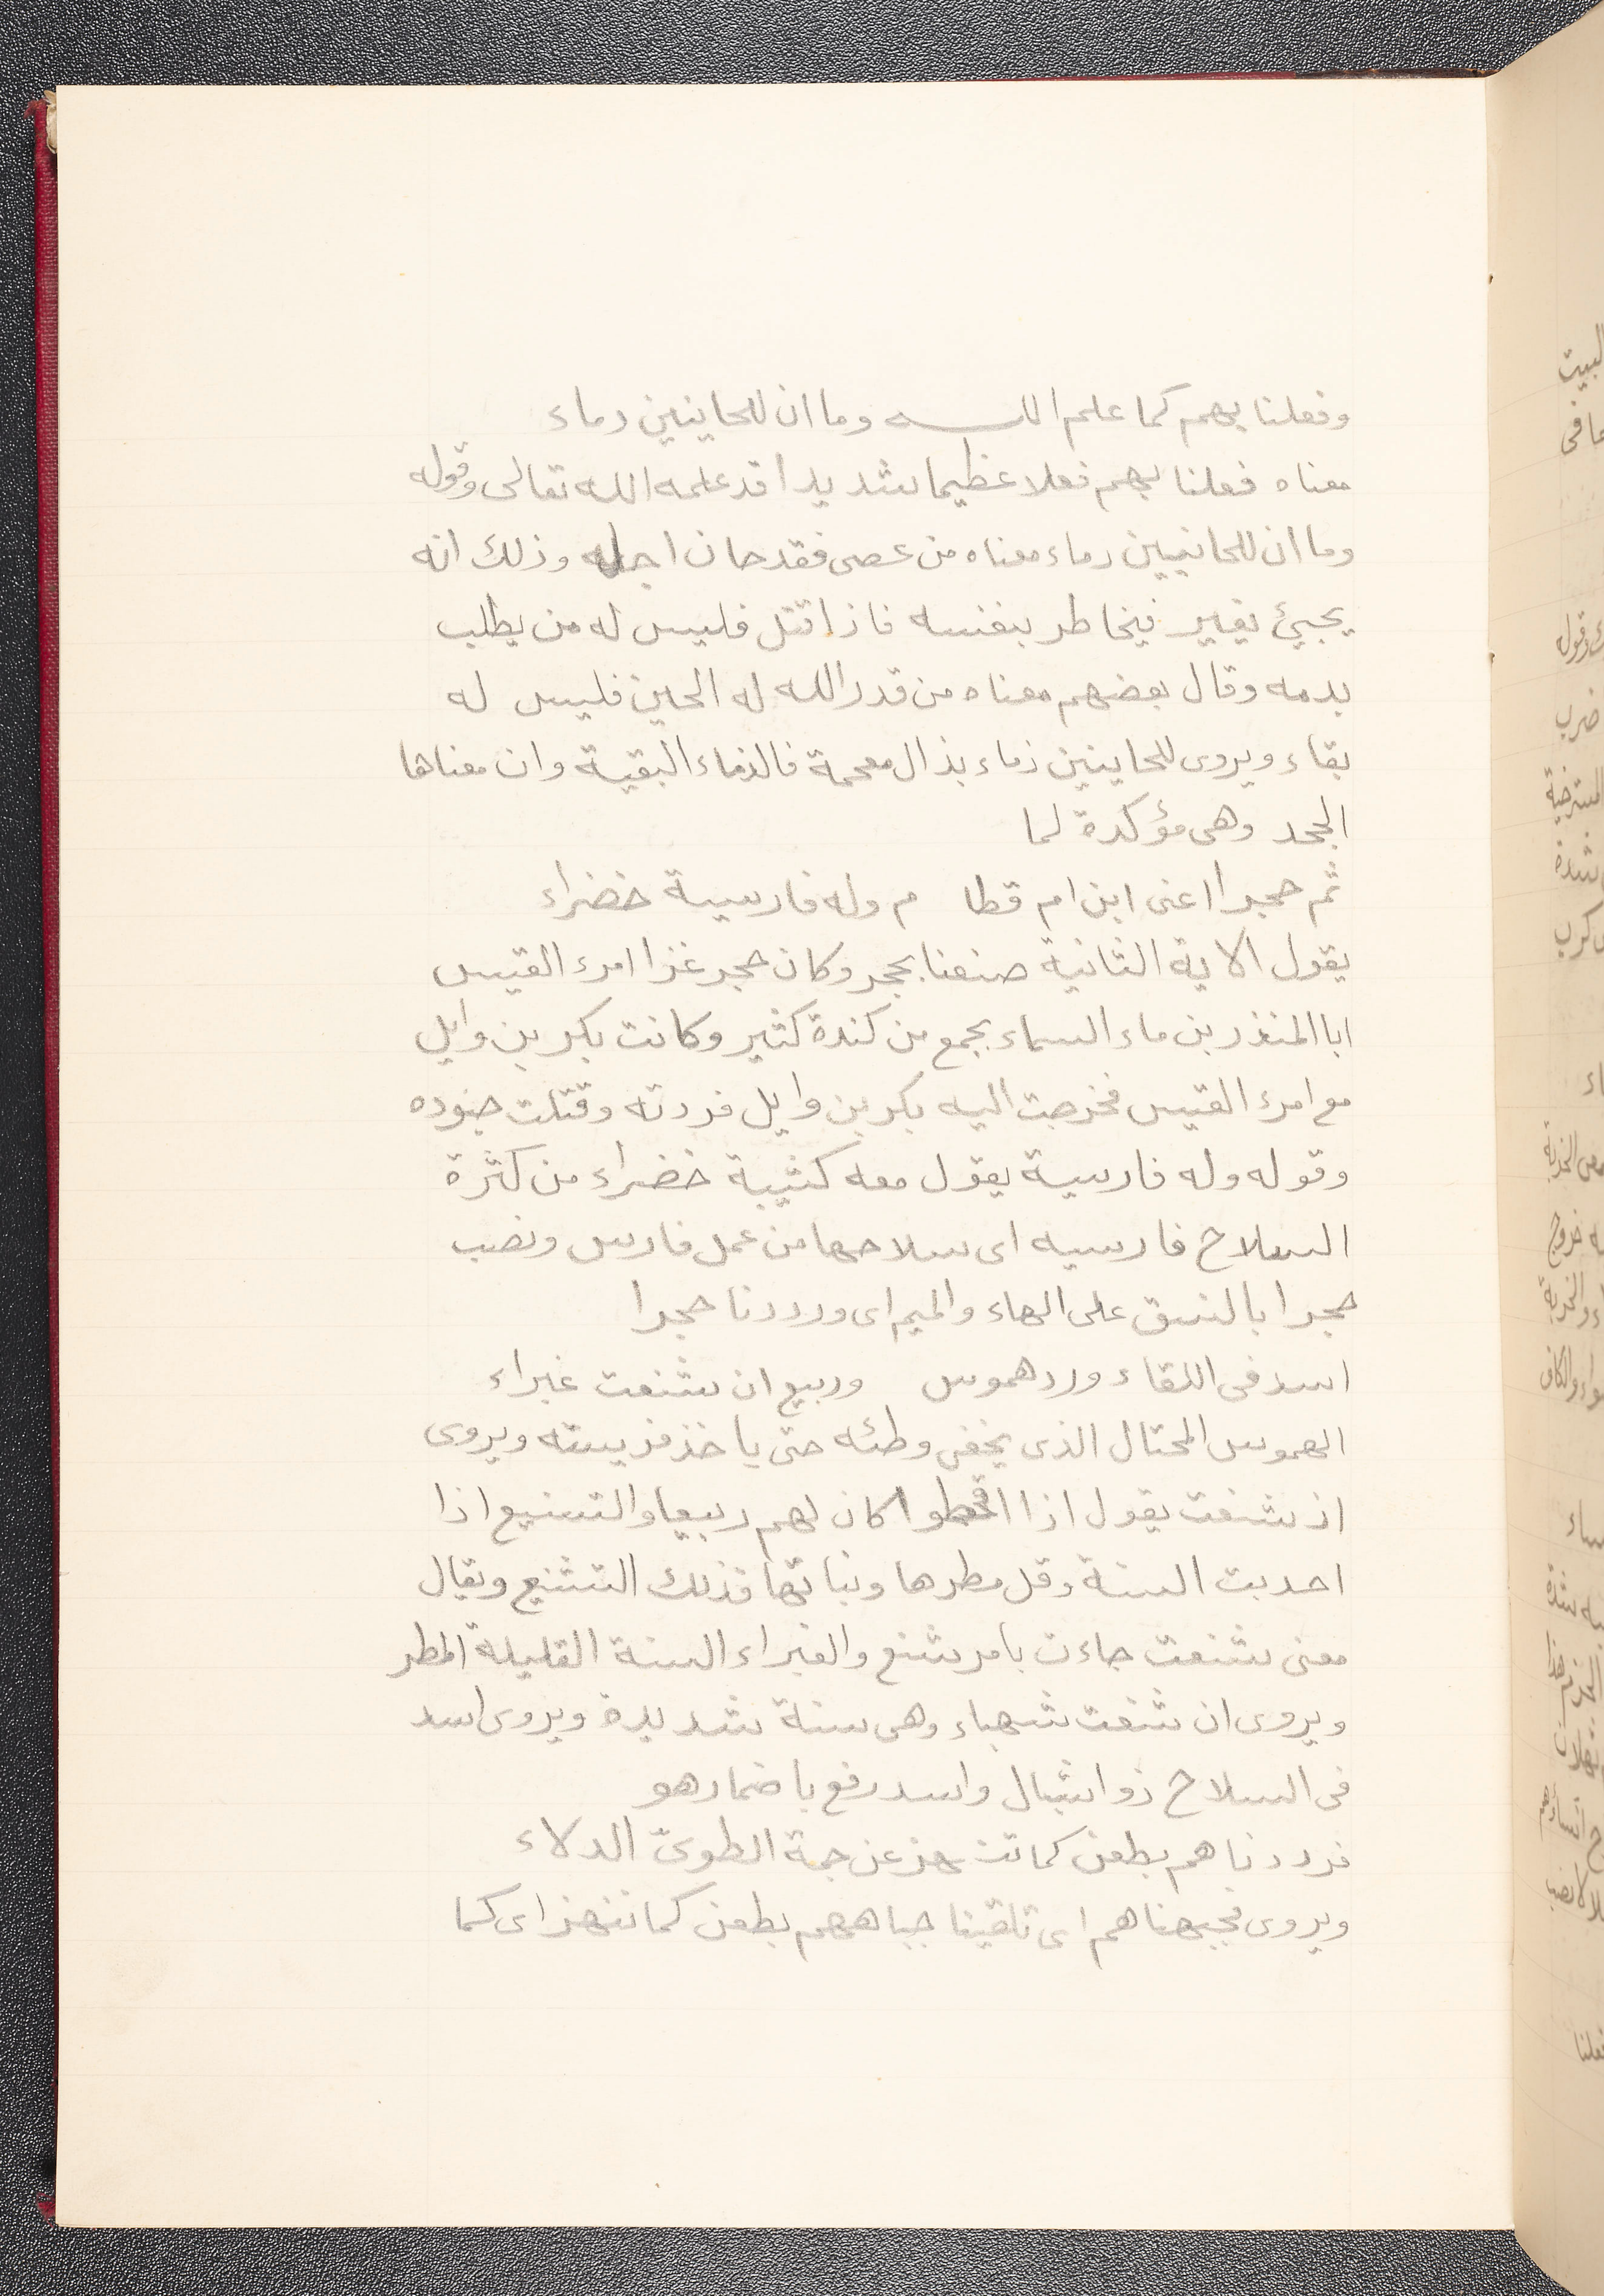 وفعلنا بهم كما علم اللـــه وما ان للحاينين دماء
معناه فعلنا بهم فعلا عظيما شديدا قد علمه الله تعالى وقوله
وما ان للحانيين دماء معناه من عصى فقد حان اجله وذلك انه
يجيئ يغير فيخاطر بنفسه فاذا قتل فليس له من يطلب
بدمه وقال بعضهم معناه من قدر الله له الحين فليس له
بقاء ويروى للحاينين ذماء بذال معجمة فالذماء البقية وان معناها
الجحد وهى مؤكدة لما
ثم حجرا اعنى ابن ام قطا م وله فارسية خضراء
يقول الاية الثانية صنعنا بحجر وكان حجر غزا امرء القيس
ابا المنذر بن ماء السماء بجمع من كندة كثير وكانت بكر بن وايل
مع امرء القيس فخرجت اليه بكر بن وايل فردته وقتلت جنوده
وقوله وله فارسية يقول معه كثيبة خضراء من كثرة
السلاح فارسيه اى سلاحها من عمل فارس ونصب
حجرا بالنسق على الهاء والميم اى ورددنا حجرا
اسد فى اللقاء ورد هموس وربيع ان شنعت غبراء
الهموس المحتال الذى يخفى وطئه حتى ياخذ فريسته ويروى
ان شنعت يقول اذا اقحطوا كان لهم ربيعا والتسنيع اذا
احدبت السنة وقل مطرها ونباتها فذلك التشنيع ويقال
معنى شنعت جاءت بامر شنع والغبراء السنة القليلة المطر
ويروى ان شنعت شهباء وهى سنة شديدة ويروى اسد
فى السلاح ذو اشبال واسد رفع باضمار هو
فرددناهم بطعن كما تنهز عن جمة الطوىّ الدلاء
ويروى فجبهناهم اى تلقينا جباههم بطعن كما تنهز اى كما